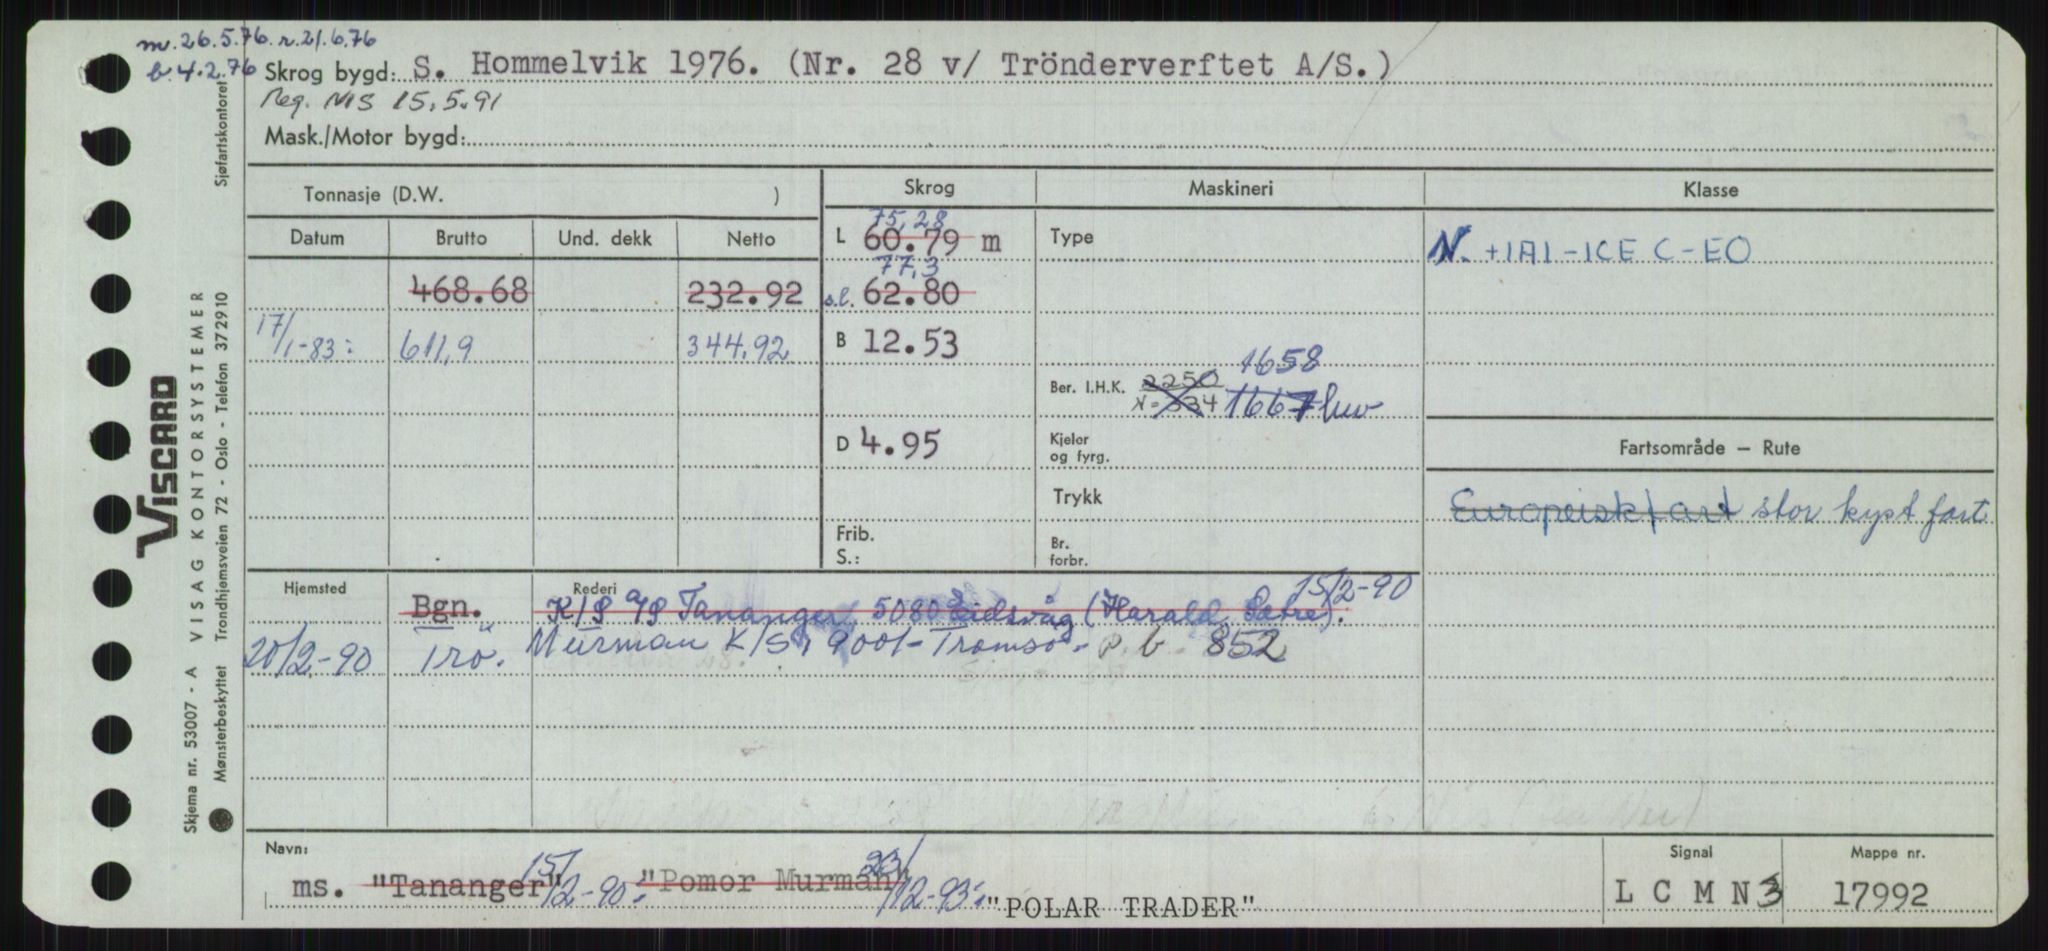 m. 26.5.76. r. 21.6.76
b. 4.2.76
Skrog bygd: S. Hommelvik 1976. (Nr. 28 v/ Trönderverftet A/S.)
Reg. NIS 15.5.91
Mask./Motor bygd:
Tonnasje (D.W. )
Datum Brutto Und. dekk Netto
468.68 232.92
17/1-83: 611,9 344,92
Skrog
75,28
L 60.79 m
77,3
s.l. 62.80
B 12.53
D 4.95
Frib.
S.:
Maskineri
Type
1658
Ber. I.H.K. 2250
N-334 1667 
Kjeler
og fyrg.
Trykk
Br.
forbr.
Klasse
N. +1A1-ICE C-EO
Fartsområde — Rute
Europeisk fart stor kyst fart
Hjemsted Rederi
Bgn. K/S A/S Tananger, 5080 Eidsvåg (Harald Sætre). 15/2-90
20/2-90 Trö. Murman K/S, 9001-Tromsö. p.b. 852
Navn:
ms. "Tananger" 15/2-90: "Pomor Murman" 23/12-93: "POLAR TRADER"
Signal
L C M N 3
Mappe nr.
17992
Sjøfartskontoret
VISCARD
VISAG KONTORSYSTEMER
Trondhjemsveien 72 - Oslo - Telefon 372910
Skjema nr. 53007 - A
Mønsterbeskyttet